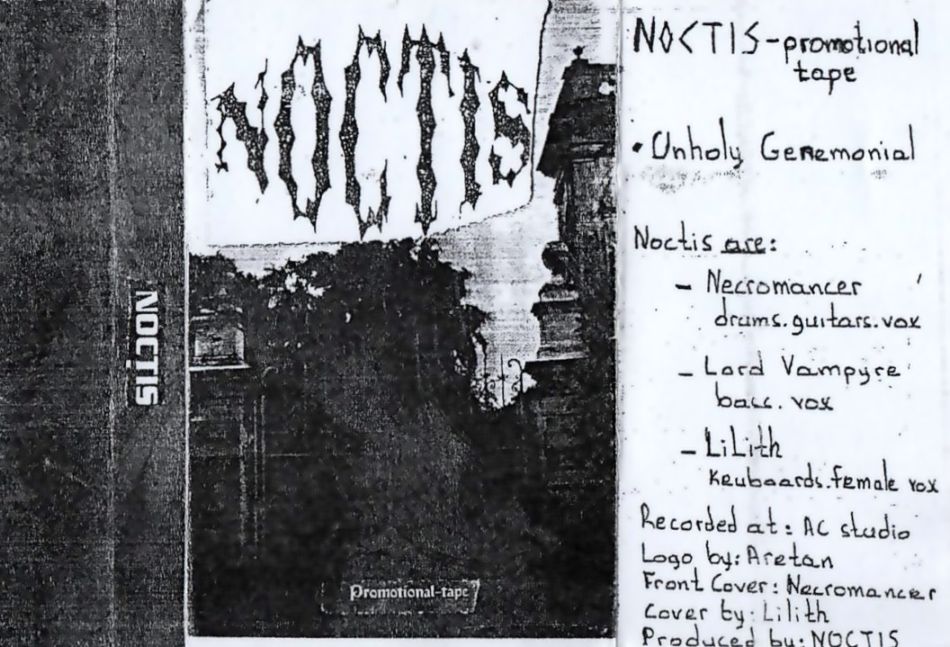 NOCTIS
NOCTIS
Promotional-tape
NOCTIS-promotional
tape
• Unholy Geremonial
Noctis are:
- Necromancer
drums.guitars.vox
- Lord Vampyre
bacc. vox
- LiLith
Keuboards.female vox
Recorded at: AC studio
Logo by: Aretan
Front Cover: Necromancer
Cover by: Lilith
Produced by: NOCTIS